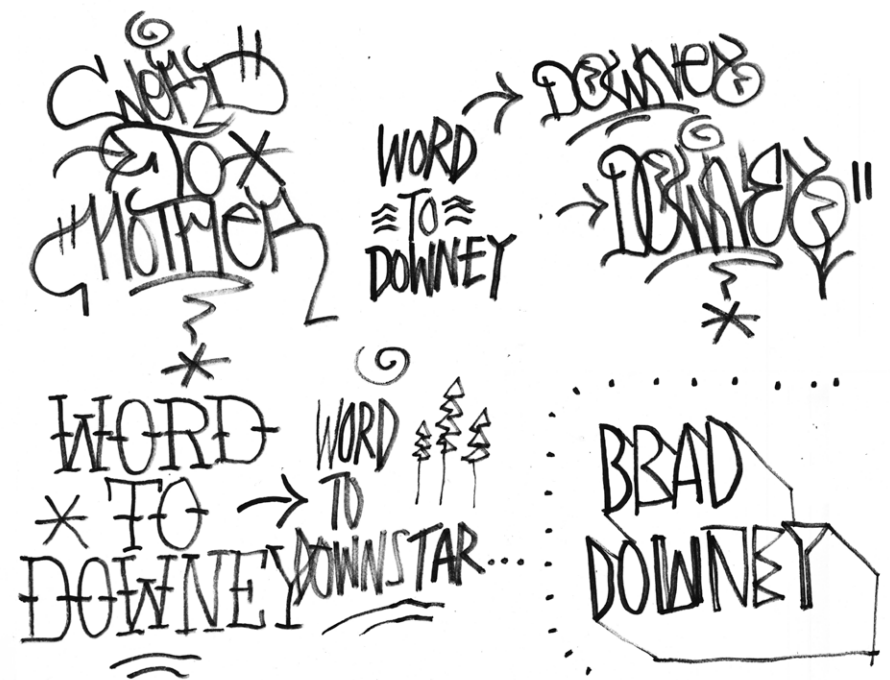 WORD"
TO
"MOTHER
WORD
TO
DOWNEY
DOWNEY
DOWNEY"
WORD
TO
DOWNEY
WORD
TO
DOWNSTAR...
BRAD
DOWNEY